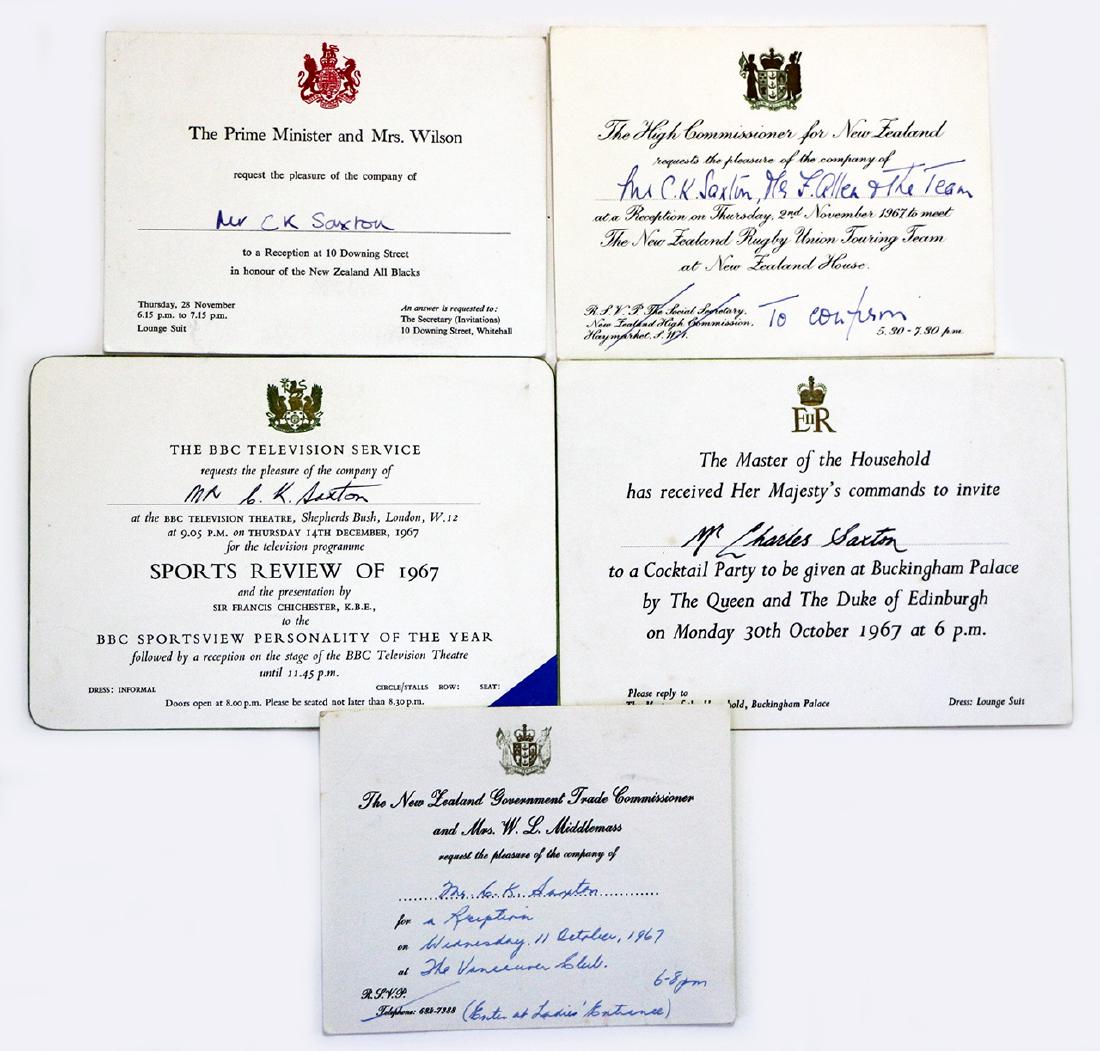 The Prime Minister and Mrs. Wilson
request the pleasure of the company of
Mr C K Saxton
to a Reception at 10 Downing Street
in honour of the New Zealand All Blacks
Thursday, 28 November
6.15 p.m. to 7.15 p.m.
Lounge Suit
An answer is requested to:
The Secretary (Invitations)
10 Downing Street, Whitehall
The High Commissioner for New Zealand
requests the pleasure of the company of
Mr C.K. Saxton, Mr F. Allen & The Team
at a Reception on Thursday, 2nd November 1967 to meet
The New Zealand Rugby Union Touring Team
at New Zealand House.
R.S.V.P. The Social Secretary,
New Zealand High Commission,
Haymarket, S.W.1.
To confirm
5.30 - 7.30 pm.
THE BBC TELEVISION SERVICE
requests the pleasure of the company of
Mr C. K. Saxton
at the BBC TELEVISION THEATRE, Shepherds Bush, London, W.12
at 9.05 P.M. on THURSDAY 14TH DECEMBER, 1967
for the television programme
SPORTS REVIEW OF 1967
and the presentation by
SIR FRANCIS CHICHESTER, K.B.E.,
to the
BBC SPORTSVIEW PERSONALITY OF THE YEAR
followed by a reception on the stage of the BBC Television Theatre
until 11.45 p.m.
DRESS: INFORMAL
CIRCLE/STALLS ROW: SEAT:
Doors open at 8.00 p.m. Please be seated not later than 8.30 p.m.
EIIR
The Master of the Household
has received Her Majesty's commands to invite
Mr Charles Saxton
to a Cocktail Party to be given at Buckingham Palace
by The Queen and The Duke of Edinburgh
on Monday 30th October 1967 at 6 p.m.
Please reply to
The Master of the Household, Buckingham Palace
Dress: Lounge Suit
The New Zealand Government Trade Commissioner
and Mrs. W. L. Middlemass
request the pleasure of the company of
Mr. C. K. Saxton
for a Reception
on Wednesday, 11 October, 1967
at The Vancouver Club.
6-8 pm
R.S.V.P.
Telephone: 685-7388 (Enter at Ladies' Entrance)